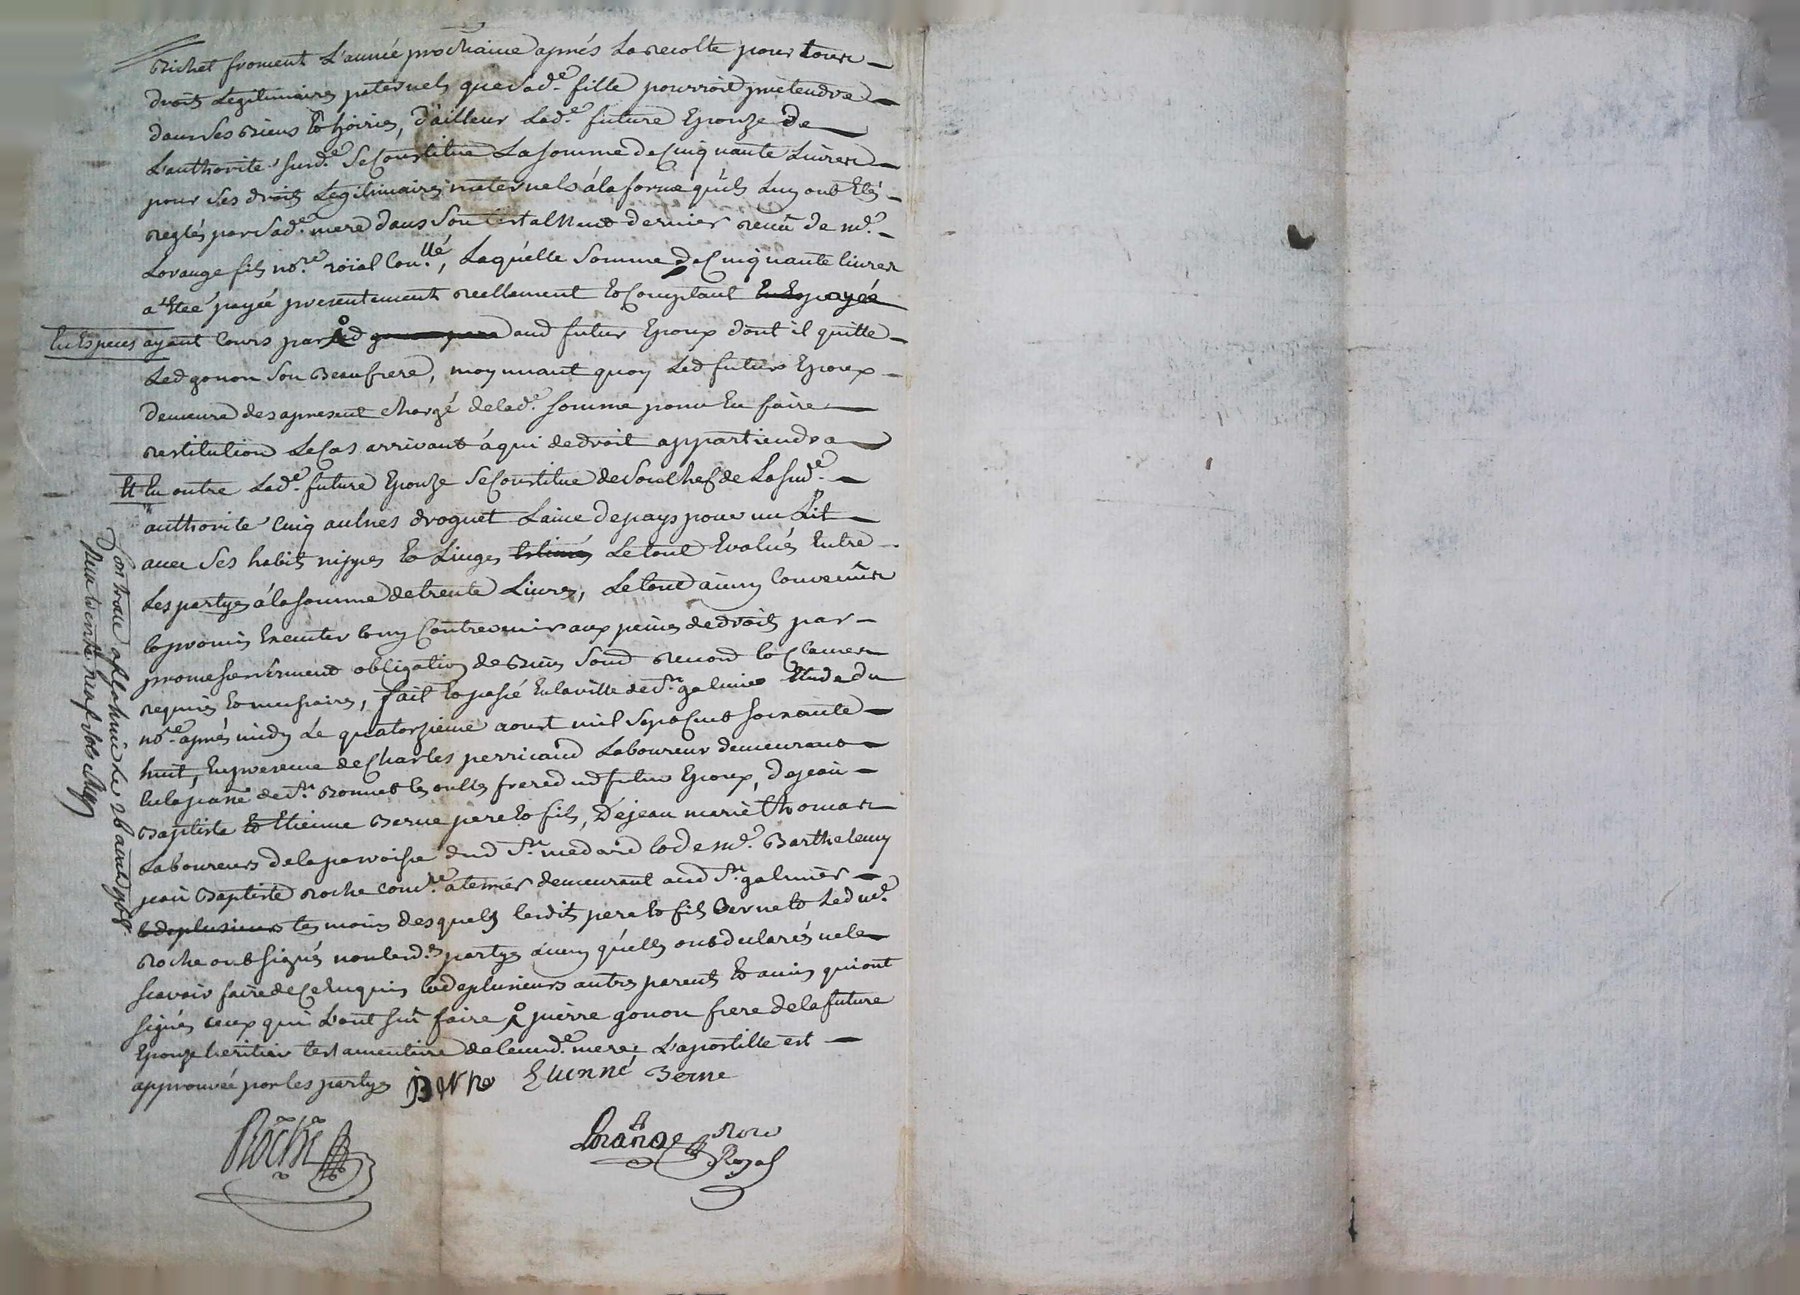 Bichet froment L'année prochaine après La recolte pour tous
droits Legitimaires paternels que Sade fille pourroit pretendre
dans ses Biens & hoiries, d'ailleur Lade future Epouze de
L'authorité susde se Constitue La somme de Cinquante Livres
pour ses droits Legitimaires maternels á la forme qu'ils Luy ont Etés
reglés par Sade mere dans Son testalment dernier receu de me
Lorange fils nore röial Conllé, Laquelle Somme de Cinquante livres
a Etéé payée presentement reellement & Comptant
En Especes ayant Cours par aud futur Epoux dont il quitte
Led gonon Son Beaufrere, moynnant quoy Led futur Epoux
demeure des apresent chargé de lade somme pour En faire
restitution Le Cas arrivant á qui de droit appartiendra
Et En outre Lade future Epouze se Constitue de Son Chef de La sude
authorité Cinq aulnes droguet Laine de pays pour un Lit
avec Ses habits nippes & Linges Le tout Evalués Entre
Les partyes á la somme de trente Livres, Le tout ainsy Convenu
& promis Executer & ny Contrevenir aux peines de droits par
promesse serment obligation de Biens Soumd renond & Clauses
requises & necessaires, fait & passé En la ville de St galmier Etude du
nore après midy Le quatorzieme aoust mil Sept Cent soixante
huit, En presence de Charles perricand Laboureur demeurant
En la parre de St Bonnet les oulles frere dud futur Epoux, De jean
Baptiste & Etienne Berne pere & fils, De jean marie thomas
Laboureurs de la parroisse dud St medard & de me Barthelemy
jean Baptiste Roche demeurant aud St galmier
temoins desquels lesdits pere & fils Berne & Led me
Roche ont signés non lesds partyes ainsy qu'elles ont declarés ne le
scavoir faire de Ce Enquis & de plusieurs autres parents & amis qui ont
signés ceux qui L'ont sceu faire pierre gonon frere de la future
Epouze héritier testamentaire de leurde mere L'apostille est
approuvée par les partyes
Berne Etienne Berne
Roche
Lorange Nore
Royal
Controllé a St galmier Le 26 aoust 1768